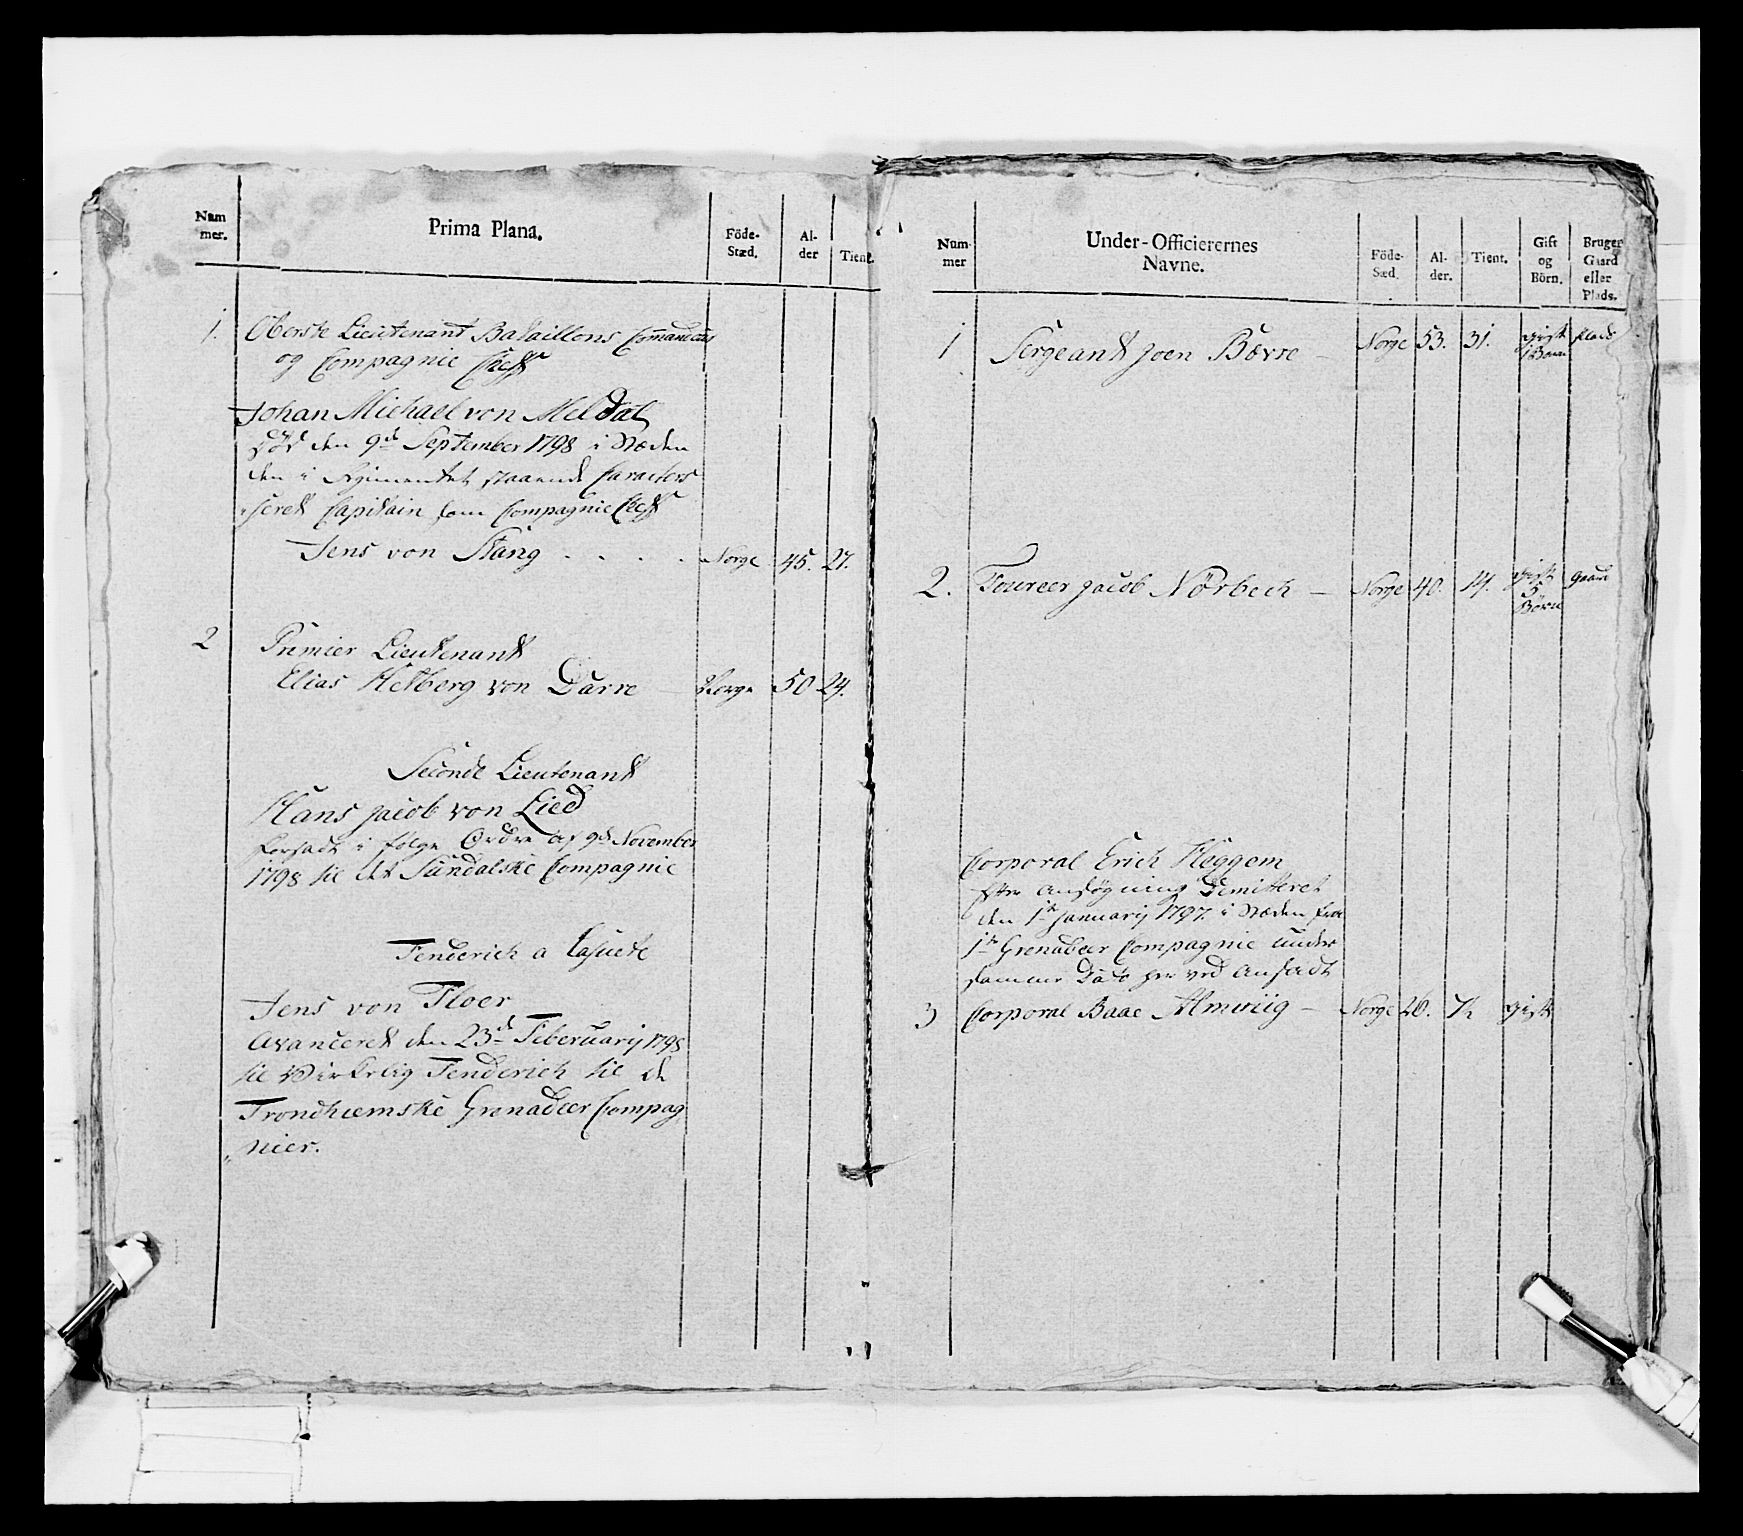 Num
mer.
Prima Plana.
Föde-
Stæd.
Al-
der
Tient.
1.
Oberste Lieutenant Bataillons Comandeur
og Compagnie Cheff
Johan Michael von Meldal
Død den 9de September 1798 i Stæden
den i Regimentet staaende Caracteri
seret Capitain som Compagnie Cheff
Jens von Stang . . . . Norge 45. 27.
2 Premier Lieutenant
Elias Hetberg von Darre — Norge 50 24.
Seconde Lieutenant
Hans Jacob von Lied
forsadt i følge Ordre af 9de November
1798 til det Sundalske Compagnie
Fenderich a la Suete
Jens von Floer
Avanceret den 23de Februarij 1798
til Virkelig Fenderich til de
Trondhiemske Grenadeer Compag
nier.
Num-
mer
Under-Officierernes
Navne.
Föde-
Sæd.
Al-
der.
Tient.
Gift
og
Börn.
Bruger
Gaard
eller
Plads.
1 Sergeant Joen Bævre — Norge 53. 31. gift
1 Barn
Plads
2. Foureer Jacob Nørbech — Norge 40. 14. gift
5
Børn
Gaard
Corporal Erich Heggem
efter Ansøgning Demitteret
den 1te Januarij 1797. i Stæden fra
1te Grenadeer Compagnie under
samme Dato her ved Ansadt
3 Corporal Baae Almviig — Norge 26. gift